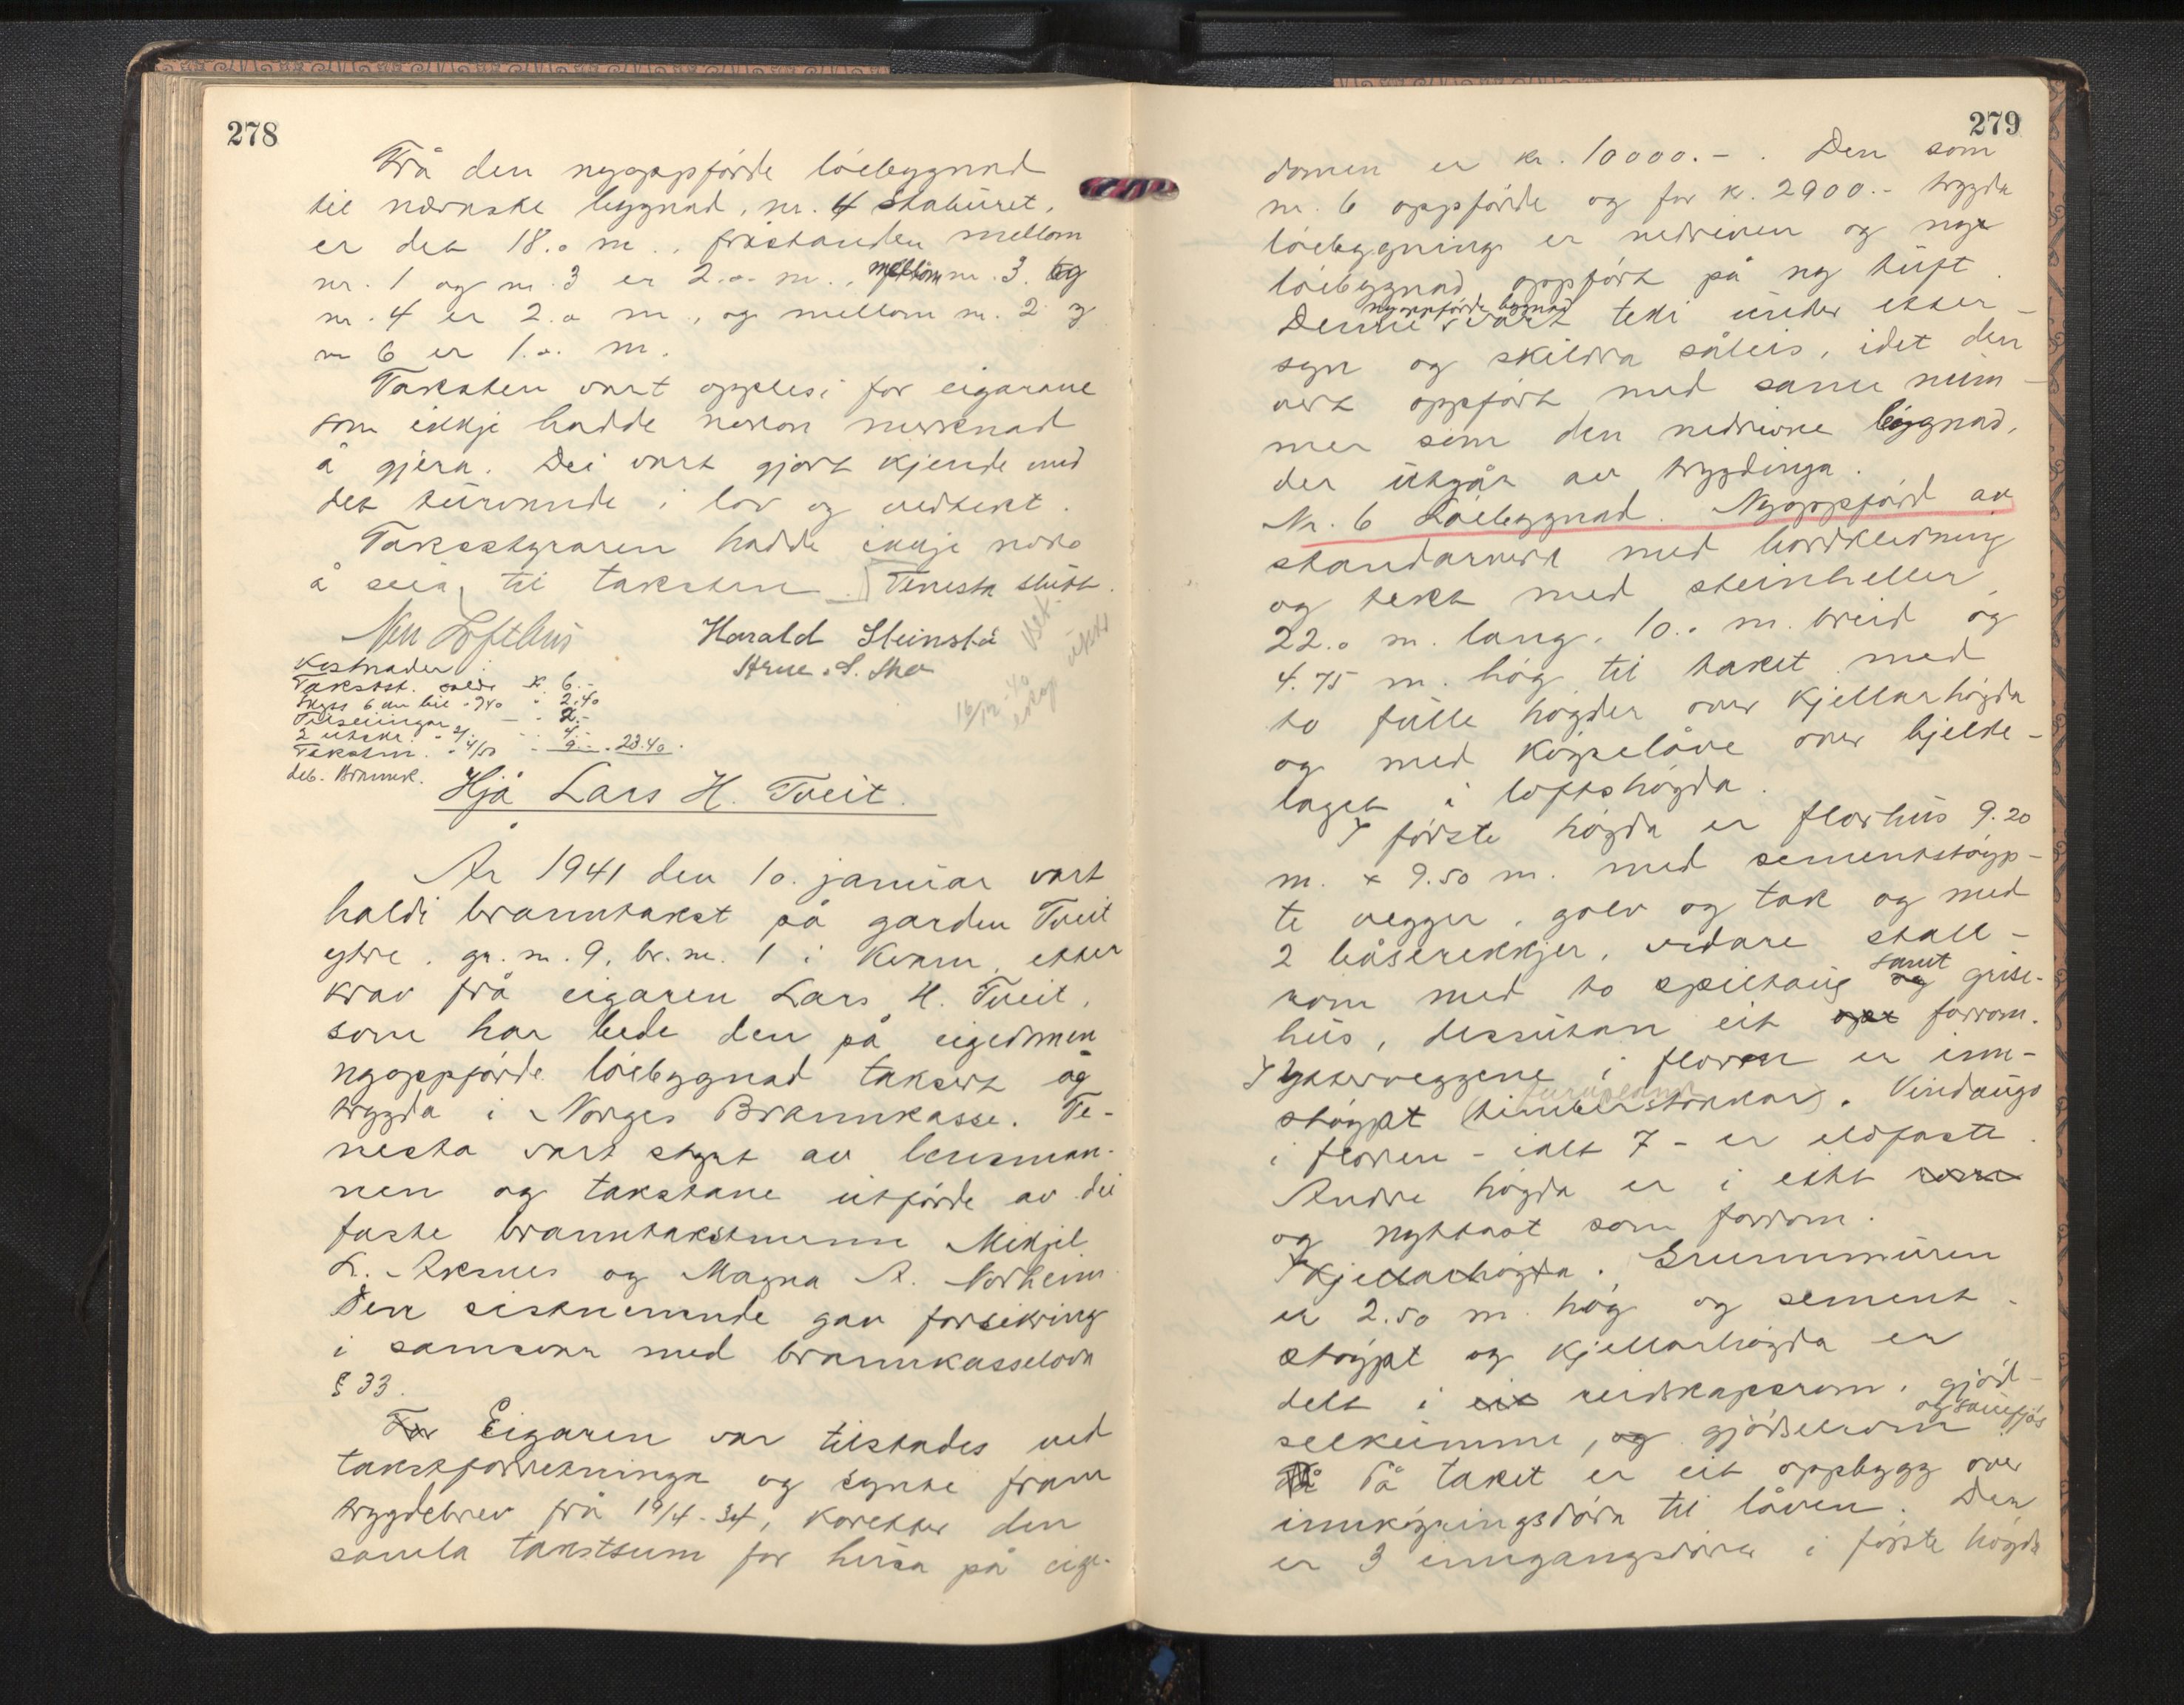 278
Frå den nyoppförde löebygnad
til nærmaste bygnad, nr. 4 stabüret,
er det 18.0 m., fråstanden mellom
nr. 1 og nr. 3 er 2.0 m., mellom nr. 3 og
nr. 4 er 2.0 m., og mellom nr. 2 og
nr 6 er 1.0. m.
Taksten vart opplesi for eigarane
som ikkje hadde nokon merknad
å gjera. Dei vart gjort kjende med
det türvande i lov og vedtekt.
Takststyraren hadde ikkje noko
å seia til taksten. Tenesta slütt.
Lofthus Harald Steinstø
Arne S.
Kostnader:
Takstst. kr. 6.-
Skyss 6 km bil - 940 " 2.40
Tilseiingar - " 2.-
2 utskr. " 2/- " 4.-
Takstm. " 4/50 " 9.- 23.40.
deb. Brannk.
16/12 40
Hjå Lars H. Tveit.
År 1941 den 10. januar vart
haldi branntakst på garden Tveit
ytre, gr. nr. 9, br. nr. 1 i Kvam, etter
krav frå eigaren Lars H. Tveit,
som har bede den på eigedomen
nyoppförde löebygnad taksert og
trygda i Norges Brannkasse. Te-
nesta vart styrt av lensman-
nen og takstane ütförde av dei
faste branntakstmenn Mikjel
L. Aksnes og Magna A. Norheim
Den sistnemnde gav forsikring
i samsvar med brannkasselova
§ 33.
For Eigaren var tilstades ved
takstforretninga og synte fram
trygdebrev frå 19/4-34, koretter den
samla takstsum for hüsa på eige-
279
domen er kr. 10000.-. Den som
nr. 6 oppförde og for kr. 2900.- trygda
löebygning er nedriven og nye
löebygnad oppfört på ny tüft.
nyoppförde bygnad
Denne vart teki ünder etter-
syn og skildra såleis, idet den
vert oppfört med same nüm-
mer som den nedrivne bygnad,
der ütgår av trygdinga.
Nr. 6 Löebygnad. Nyoppförd av
standarverk med bordkledning
og tekt med steinheller,
22.0 m. lang, 10.0 m. breid og
4.75 m. hög til taket med
to fülle högder over kjellarhögda
og med köyrelåve over bjelke-
laget i loftshögda.
I förste högda er florhüs 9.20
m. x 9.50 m. med sementstöyp-
te vegger, golv og tak og med
2 båserekkjer, vidare stall-
rom med to spiltaüg og samt grise-
hüs, dessütan eit opt forrom.
I Yterveggene i floren er inn-
stöypt (timberstokkar). Vindaügo
i floren - ialt 7 - er eldfaste.
Andre högda er i eitt rom
og nyttast som forrom.
I kjellarhögda. Grunnmüren
er 2.50 m. hög og sement-
stöypt og kjellarhögda er
delt i eit reidskapsrom, gjöd-
selkümme, og gjödselrom og saüefjös
På På taket er eit oppbygg over
innköyringsdöra til låven. Der
er 3 inngangsdörer i förste högda